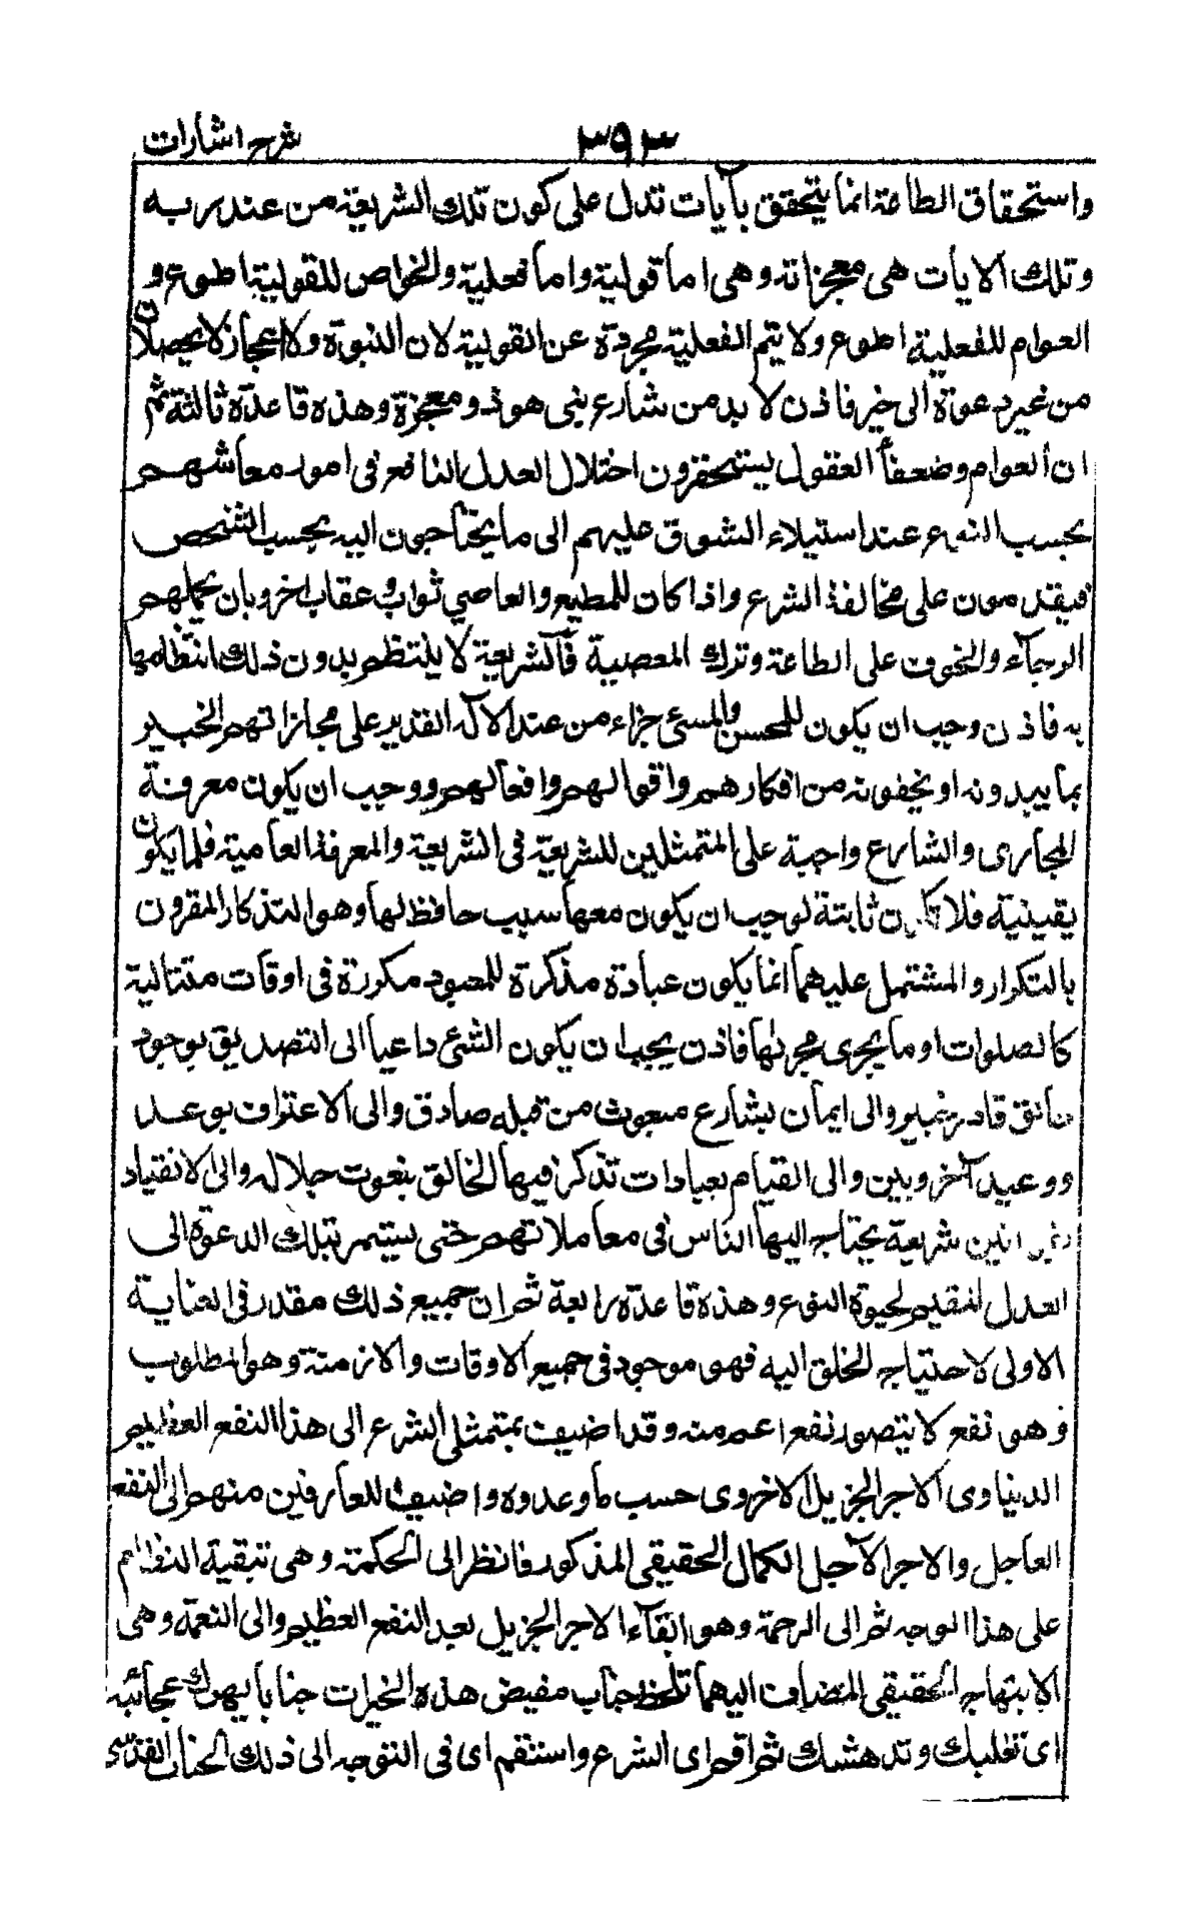 شرح اشارات ٣٩٣
واستحقاق الطاعة انما يتحقق بآيات تدل على كون تلك الشريعة من عند ربه
وتلك الايات هى معجزاته وهى اما قولية واما فعلية والخواص للقولية اطوع و
العوام للفعلية اطوع ولا يتم الفعلية مجردة عن القولية لان النبوة والاعجاز لا يحصلان
من غير دعوة الى خير فاذن لا بد من شارع نبى هو ذو معجزة وهذه قاعدة ثالثة ثم
ان العوام وضعفاء العقول يستحقرون اختلال العدل النافع فى امور معاشهم
بحسب النوع عند استيلاء الشوق عليهم الى ما يحتاجون اليه بحسب الشخص
فيقدمون على مخالفة الشرع واذا كان للمطيع والعاصى ثواب وعقاب اخرويان يحملهم
الرجآء والخوف على الطاعة وترك المعصية فالشريعة لا ينتظم بدون ذلك انتظامها
به فاذن وجب ان يكون للمحسن والمسئ جزاء من عند الاله القدير على مجازاتهم الخبير
بما يبدونه او يخفونه من افكارهم واقوالهم وافعالهم ووجب ان يكون معرفة
المجازى والشارع واجبة على المتمثلين للشريعة فى الشريعة والمعرفة العامية فلما يكون
يقينية فلا تكون ثابتة لوجب ان يكون معها سبب حافظ لها وهو التذكار المقرون
بالتكرار والمشتمل عليهما انما يكون عبادة مذكرة للمعبود مكررة فى اوقات متتالية
كالصلوات او ما يجرى مجراها فاذن يجب ان يكون الشئ داعيا الى التصديق بوجود
خالق قادر خبير والى ايمان بشارع مبعوث من قبله صادق والى الاعتراف بوعد
ووعيد آخروبين والى القيام بعبادات تذكر فيها الخالق بنعوت جلاله والى الانقياد
شريعة يحتاج اليها الناس فى معاملاتهم حتى يستمر بتلك الدعوة الى
العدل المقيم لحيوة النوع وهذه قاعدة رابعة ثم ان جميع ذلك مقدر فى العناية
الاولى لاحتياج الخلق اليه فهو موجود فى جميع الاوقات والازمنة وهو المطلوب
وهو نفع لا يتصور نفع اعم منه وقد اضيف بمتمثلى الشرع الى هذا النفع العظيم
الدنياوى الاجر الجزيل الاخروى حسب ما وعدوه واضيف للعارفين منهم الى النفع
العاجل والاجر الآجل الكمال الحقيقى المذكور فانظر الى الحكمة وهى تبقية النظام
على هذا الوجه ثم الى الرحمة وهو ايقآء الاجر الجزيل بعد النفع العظيم والى النعمة وهى
الابتهاج الحقيقى المضاف اليهما تلحظ جناب مفيض هذه الخيرات جنابا يبهرك عجائبه
اى تغلبك وتدهشك ثم اقم اى الشرع واستقم اى فى التوجه الى ذلك الجناب القدسى